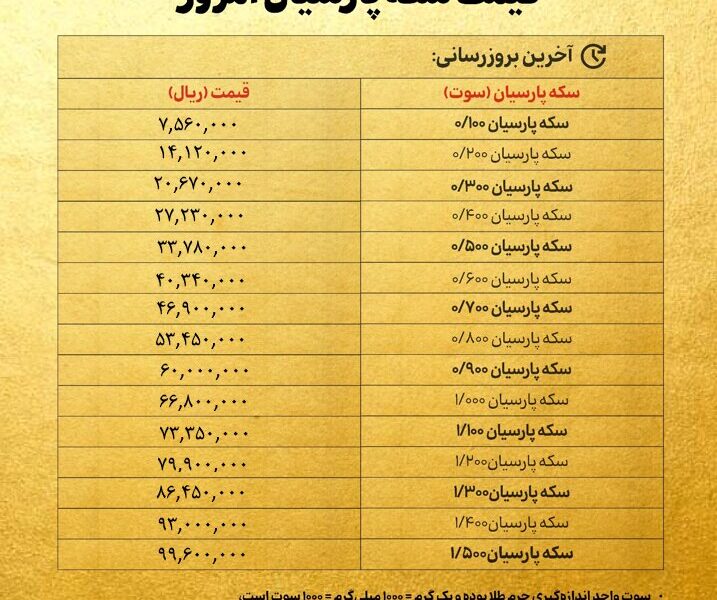 قیمت سکه پارسیان امروز
آخرین بروزرسانی:
سکه پارسیان (سوت) قیمت (ریال)
سکه پارسیان ۰/۱۰۰ ۷,۵۶۰,۰۰۰
سکه پارسیان ۰/۲۰۰ ۱۴,۱۲۰,۰۰۰
سکه پارسیان ۰/۳۰۰ ۲۰,۶۷۰,۰۰۰
سکه پارسیان ۰/۴۰۰ ۲۷,۲۳۰,۰۰۰
سکه پارسیان ۰/۵۰۰ ۳۳,۷۸۰,۰۰۰
سکه پارسیان ۰/۶۰۰ ۴۰,۳۴۰,۰۰۰
سکه پارسیان ۰/۷۰۰ ۴۶,۹۰۰,۰۰۰
سکه پارسیان ۰/۸۰۰ ۵۳,۴۵۰,۰۰۰
سکه پارسیان ۰/۹۰۰ ۶۰,۰۰۰,۰۰۰
سکه پارسیان ۱/۰۰۰ ۶۶,۸۰۰,۰۰۰
سکه پارسیان ۱/۱۰۰ ۷۳,۳۵۰,۰۰۰
سکه پارسیان۱/۲۰۰ ۷۹,۹۰۰,۰۰۰
سکه پارسیان۱/۳۰۰ ۸۶,۴۵۰,۰۰۰
سکه پارسیان۱/۴۰۰ ۹۳,۰۰۰,۰۰۰
سکه پارسیان۱/۵۰۰ ۹۹,۶۰۰,۰۰۰
• سوت واحد اندازه‌گیری جرم طلا بوده و یک گرم = ۱۰۰۰ میلی‌گرم = ۱۰۰۰ سوت است.